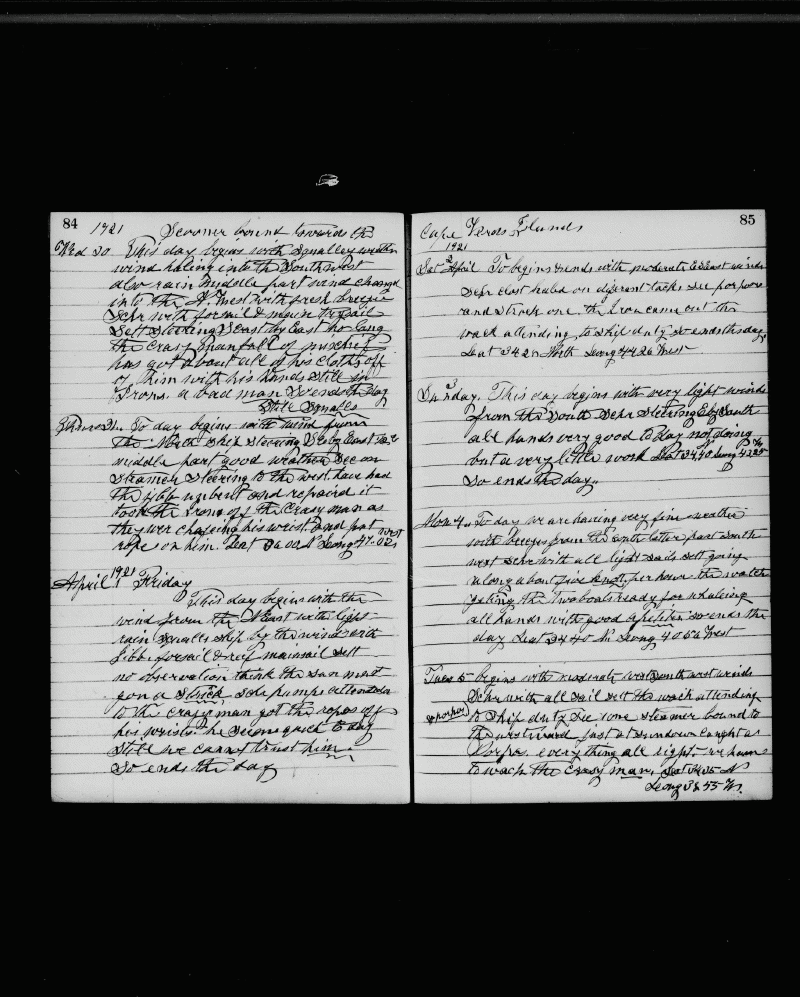 84 1921 Scooner bound towards the
Wed 30 This day begins with Squalley weather
wind haling into the South West
also rain middle part wind changed
into the N West with fresh breezie
Schr with forsail & main trysail
Sett Steering S East by East ho long
the Crasy man full of mischief
has got about all of his cloths off
of him with his hands still in
Irons. a bad man So ends the day
Still Squalls
Thurs 31. To day begins with wind from
the North Ship Steering E by East
middle part good weather See on
steamer steering to the west. have had
the jibb unbent and repaired it
took the irons off the Crasy man as
they wer chafeing his wrist. and put
rope on him. Lat 36 00 N Long 47-02 West
April 1 1921 Friday
This day begins with the
wind from the N East with light
rain Squalls Ship by the wind with
jibb. forsail & reef mainsail Sett
no observation think the Sun must
gon a Strick Schr pumps attended
to the crasy man got the ropes off
his wrists he seems good to day
Still we cannot trust him
So ends the day
85
Cape Verds Ilands
1921
Sat 2 April To begins & ends with moderate E East winds
Schr clost haled on diferent tacks See porpore
and Struck one. the Iron came out the
wach attending to Ship duty So ends the day
Lat 34 2 North Long 44 26 West
Sunday. 3 This day begins with very light winds
from the South Schr Steering E by South
all hands very good to Day not doing
but a very little work Lat 34,40 N Long 43 25 W
So ends the day.
Mon 4. To day we are having very fine weather
with breezes from the South latter part South
west Schr with all light Sails Sett going
along about five knots per hour the watch
geting the two boats ready for whaleing
all hands with good apetites So ends the
day Lat 34 40 N Long 40 50 West
Tues 5 begins with moderate west South west winds
Schr with all Sail Sett the wach attending
to Ship duty See one steamer bound to
(porpos)
the westward just at Sundown caught a
Porpos. everything all right. we have
to wach the Crasy man, Lat 34 35 N
Long 38 55 W.